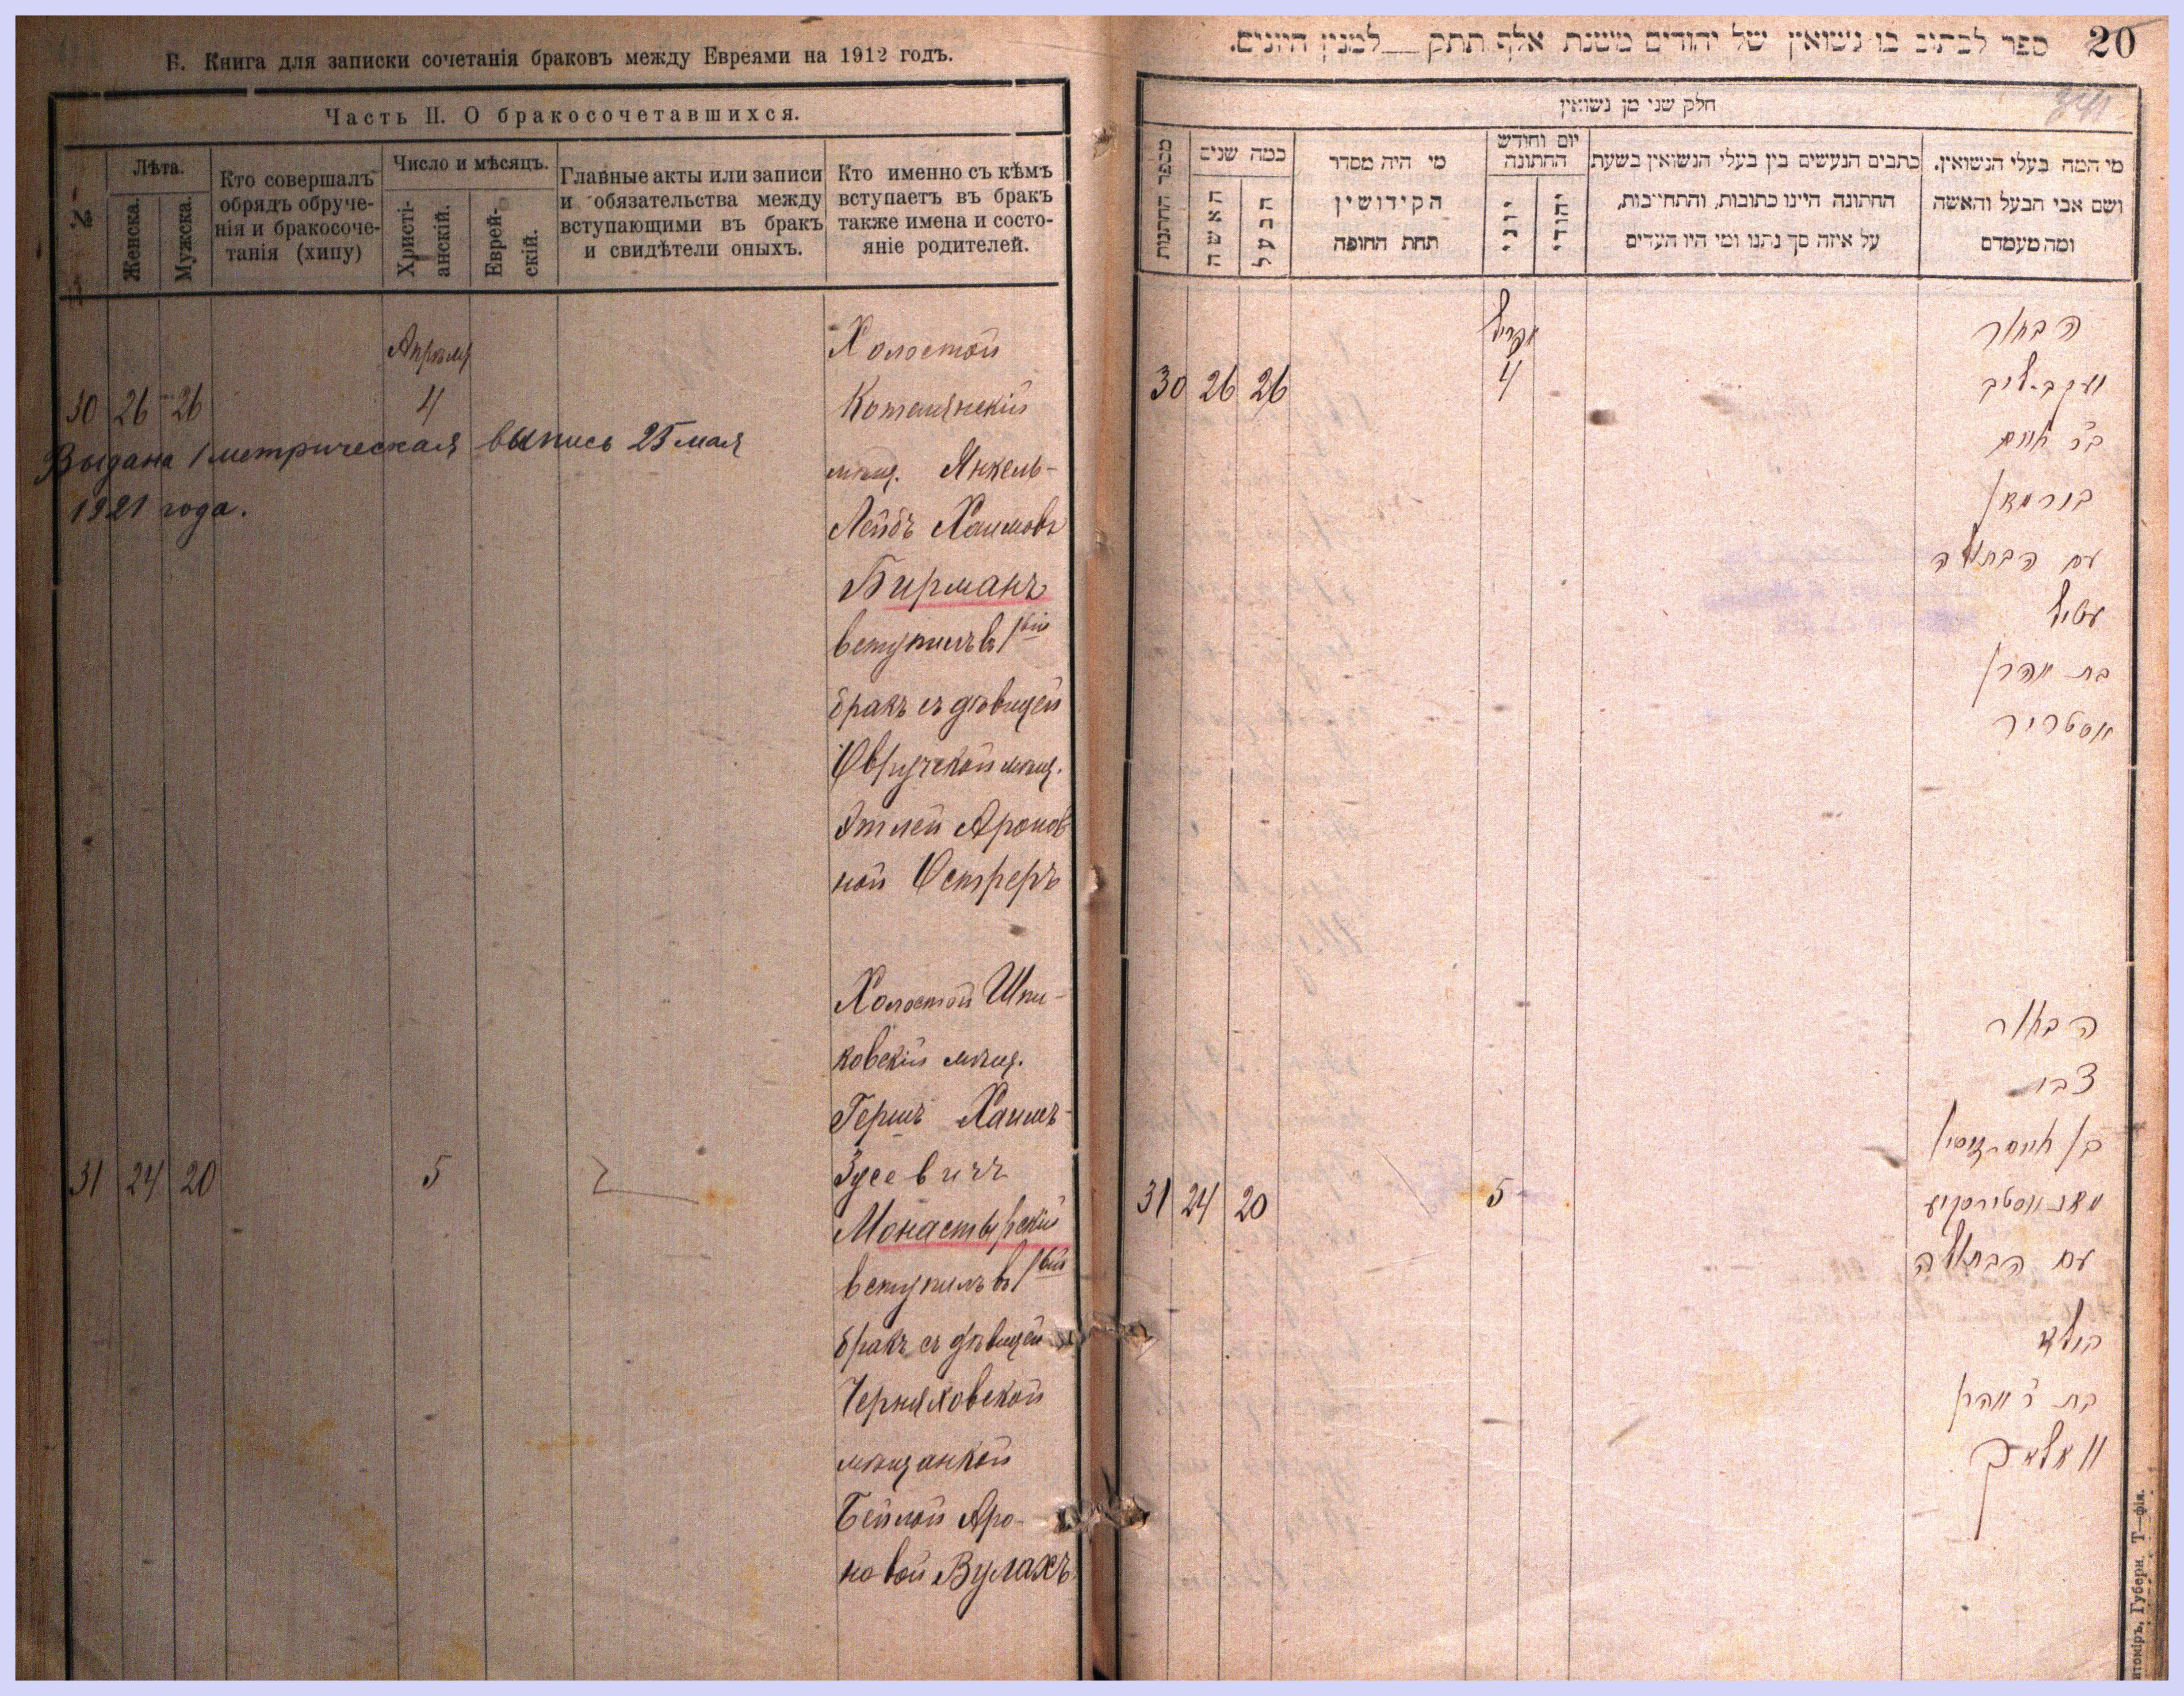 Б. Книга для записки сочетанія браковъ между Евреями на 1912 годъ.
Часть II. О бракосочетавшихся.
№
Лѣта.
Женска.
Мужска.
Кто совершалъ
обрядъ обруче-
нія и бракосоче-
танія (хипу)
Число и мѣсяцъ.
Христі-
анскій.
Еврей-
скій.
Главные акты или записи
и обязательства между
вступающими въ бракъ
и свидѣтели оныхъ.
Кто именно съ кѣмъ
вступаетъ въ бракъ
также имена и состо-
яніе родителей.
Апрѣля
30 26 26 4
Выдана 1 метрическая выпись 25 мая
1921 года.
Холостой
Котелянскій
мѣщ. Янкель-
Лейбъ Хаимовъ
Бирманъ
вступилъ въ 1вый
бракъ съ дѣвицей
Овручской мѣщ.
Этлей Аронов
ной Остреръ
31 24 20 5
Холостой Шпи-
ковскій мѣщ.
Гершъ Хаимъ-
Зусевичъ
Монастырскій
вступилъ въ 1вый
бракъ съ дѣвицей
Черняховской
мѣщанкой
Бейлой Аро-
новой Вулахъ
20
ספר לכתוב בו נשואין של יהודים משנת אלף תתק __ למנין היונים.
חלק שני מן נשואין
מספר החתונות
כמה שנים
האשה
הבעל
מי היה מסדר
הקידושין
תחת החופה
יום וחודש
החתונה
יוני
יהודי
כתבים הנעשים בין בעלי הנשואין בשעת
החתונה היינו כתובות, והתחייבות,
על איזה סך נתנו ומי היו העדים
מי המה בעלי הנשואין.
ושם אבי הבעל והאשה
ומה מעמדם
אפריל
30 26 26 4
הבחור
יעקב-ליב
ב"ר חיים
בורמאן
עם הבתולה
עטיל
בת אהרן
אסטריר
31 24 20 5
הבחור
צבי
בן חיים-זוסין
מאנאסטירסקיע
עם הבתולה
ביילא
בת ר' אהרן
וואלאך
итоміръ, Губерн. Т—фія.